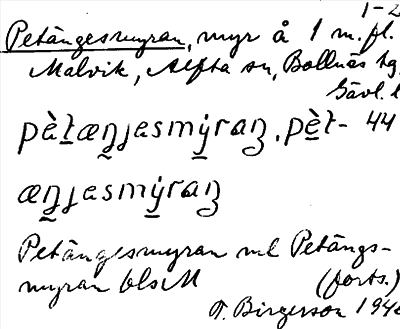 1-2
Petängesmyran, myr å 1 m.fl.
Malvik, Alfta sn, Bollnäs tg,
Gävl. l
pètæŋɟasmýraŋ, pèt- 44
æŋɟasmýraŋ
Petängesmyran ml Petängs-
myran blsM (forts.)
F. Birgersson 194